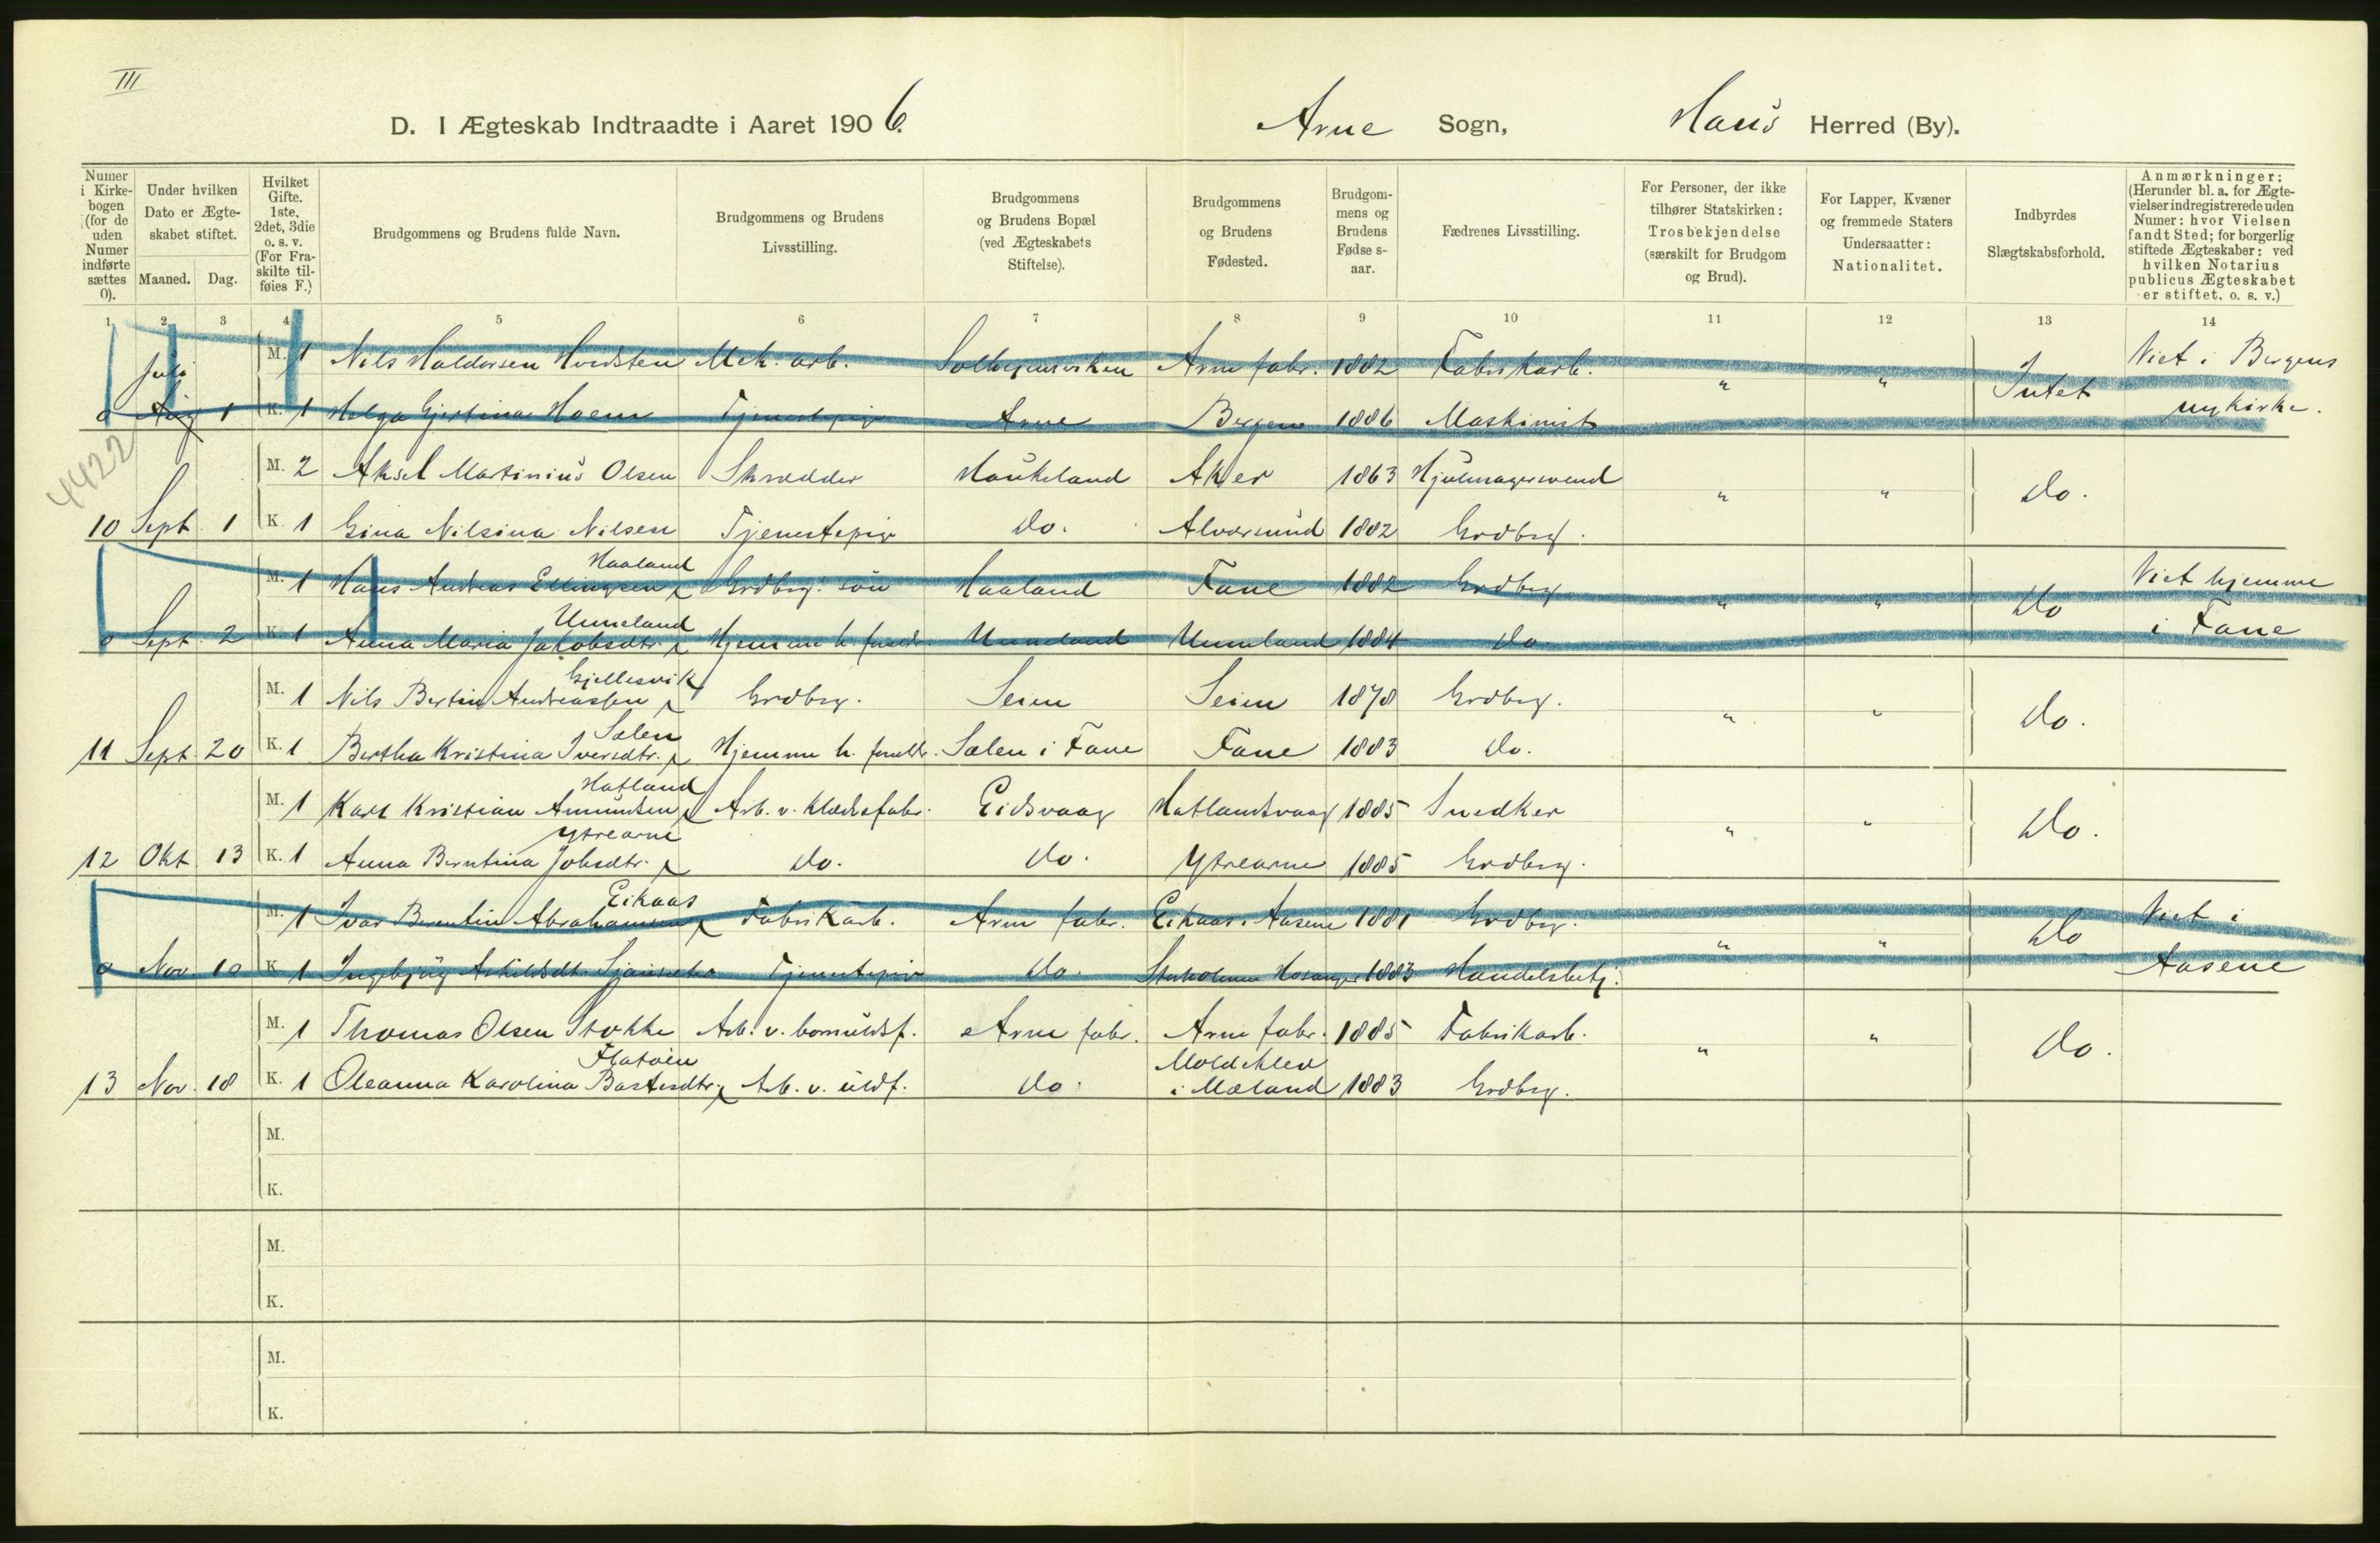 III
D. I Ægteskab Indtraadte i Aaret 1906.
Arne Sogn, Haus Herred (By).
Numer i Kirke- bogen (for de uden Numer indførte sættes 0).
Under hvilken Dato er Ægte- skabet stiftet.
Maaned. Dag.
Hvilket Gifte. 1ste, 2det, 3die o. s. v. (For Fra- skilte til- føies F.)
Brudgommens og Brudens fulde Navn.
Brudgommens og Brudens Livsstilling.
Brudgommens og Brudens Bopæl (ved Ægteskabets Stiftelse).
Brudgommens og Brudens Fødested.
Brudgom- mens og Brudens Fødse s- aar.
Fædrenes Livsstilling.
For Personer, der ikke tilhører Statskirken: Trosbekjendelse (særskilt for Brudgom og Brud).
For Lapper, Kvæner og fremmede Staters Undersaatter: Nationalitet.
Indbyrdes Slægtskabsforhold.
Anmærkninger: (Herunder bl. a. for Ægte- vielser indregistrerede uden Numer: hvor Vielsen fandt Sted; for borgerlig stiftede Ægteskaber: ved hvilken Notarius publicus Ægteskabet er stiftet, o. s. v.)
1 2 3 4 5 6 7 8 9 10 11 12 13 14
Juli M. 1 Nils Haldorsen Mek. arb. Arne fabr. 1882 Fabrikarb. " " Intet Viet i Bergens
0 Aug 1 K. 1 Helga Gjertina Tjenestepige Arne Bergen 1886 Maskinist nykirke.
4422
M. 2 Aksel Martinius Olsen Skrædder Haukeland Aker 1863 Hjulmagersvend " " Do.
10 Sept. 1 K. 1 Gina Nilsina Nilsen Tjenestepige Do. Alversund 1882 Grdbrg.
Haaland
M. 1 Hans Andreas Ellingsen Grdbrg. søn Haaland Fane 1882 Grdbrg. " " Do Viet hjemme
Unneland
0 Sept. 2 K. 1 Anna Maria Jakobsdtr. Hjemme h. foreldr. Unneland Unneland 1884 Do i Fane
Gjellesvik
M. 1 Nils Bertin Andreassen Grdbrg. Seim Seim 1878 Grdbrg. " " Do.
Sælen
11 Sept. 20 K. 1 Bertha Kristina Iversdtr. Hjemme h. foreldr. Sælen i Fane Fane 1883 Do.
Hatland
M. 1 Karl Kristian Amundsen Arb. v. klædesfabr. Eidsvaag Hatlandsvaag 1885 Snedker " " Do.
Ytrearne
12 Okt. 13 K. 1 Anna Berntina Johsdtr. Do. Do. Ytrearne 1885 Grdbrg.
Eikaas
M. 1 Ivar Berentin Abrahamsen Fabrikarb. Arne fabr. Eikaas i Aasene 1881 Grdbrg. " " Do Viet i
0 Nov. 10 K. 1 Tjenestepige Do. Hosanger 1883 Handelsbetj. Aasene
M. 1 Thomas Olsen Stokke Arb. v. bomuldsf. Arne fabr. Arne fabr. 1885 Fabrikarb. " " Do.
Flatøen Moldeklev
13 Nov. 18 K. 1 Oleanna Karolina Bastesdtr. Arb. v. uldf. Do. i Mæland 1883 Grdbrg.
M.
K.
M.
K.
M.
K.